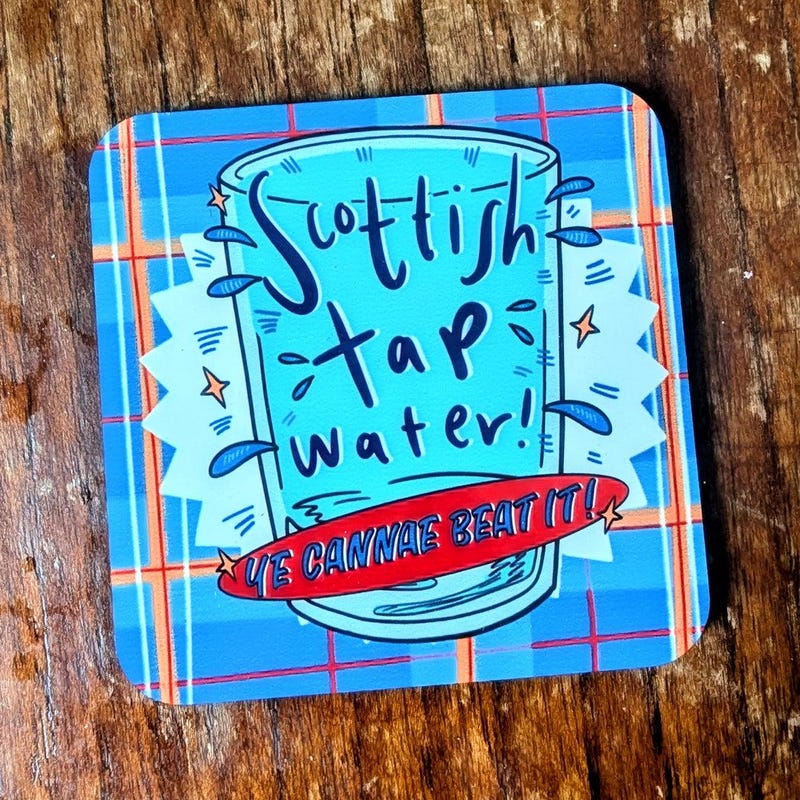 Scottish
tap
water!
YE CANNAE BEAT IT!